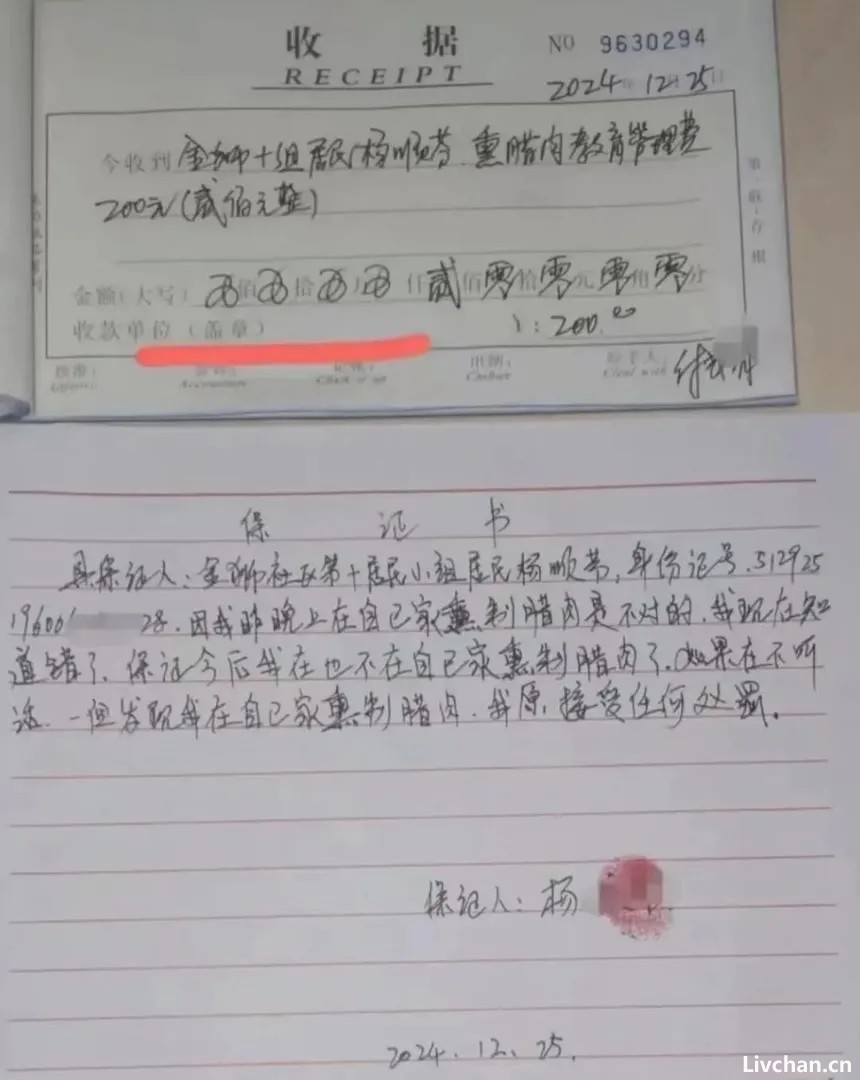 收 据
NO 9630294
RECEIPT
2024年12月25日
今收到 金狮十组居民杨顺芬.熏腊肉教育管理费
200元(贰佰元整)
金额(大写) 佰 拾 万 仟 贰佰零拾零元零角零分
收款单位(盖章)
):200.00
保 证 书
具保证人:金狮社区第十居民小组居民杨顺芬,身份证号.512925
19600 28.因我昨晚上在自己家熏制腊肉是不对的.我现在知
道错了.保证今后我在也不在自己家熏制腊肉了.如果在不听
话.一但发现我在自己家熏制腊肉.我原接受任何处罚。
保证人:杨
2024.12.25.
Livchan.cn